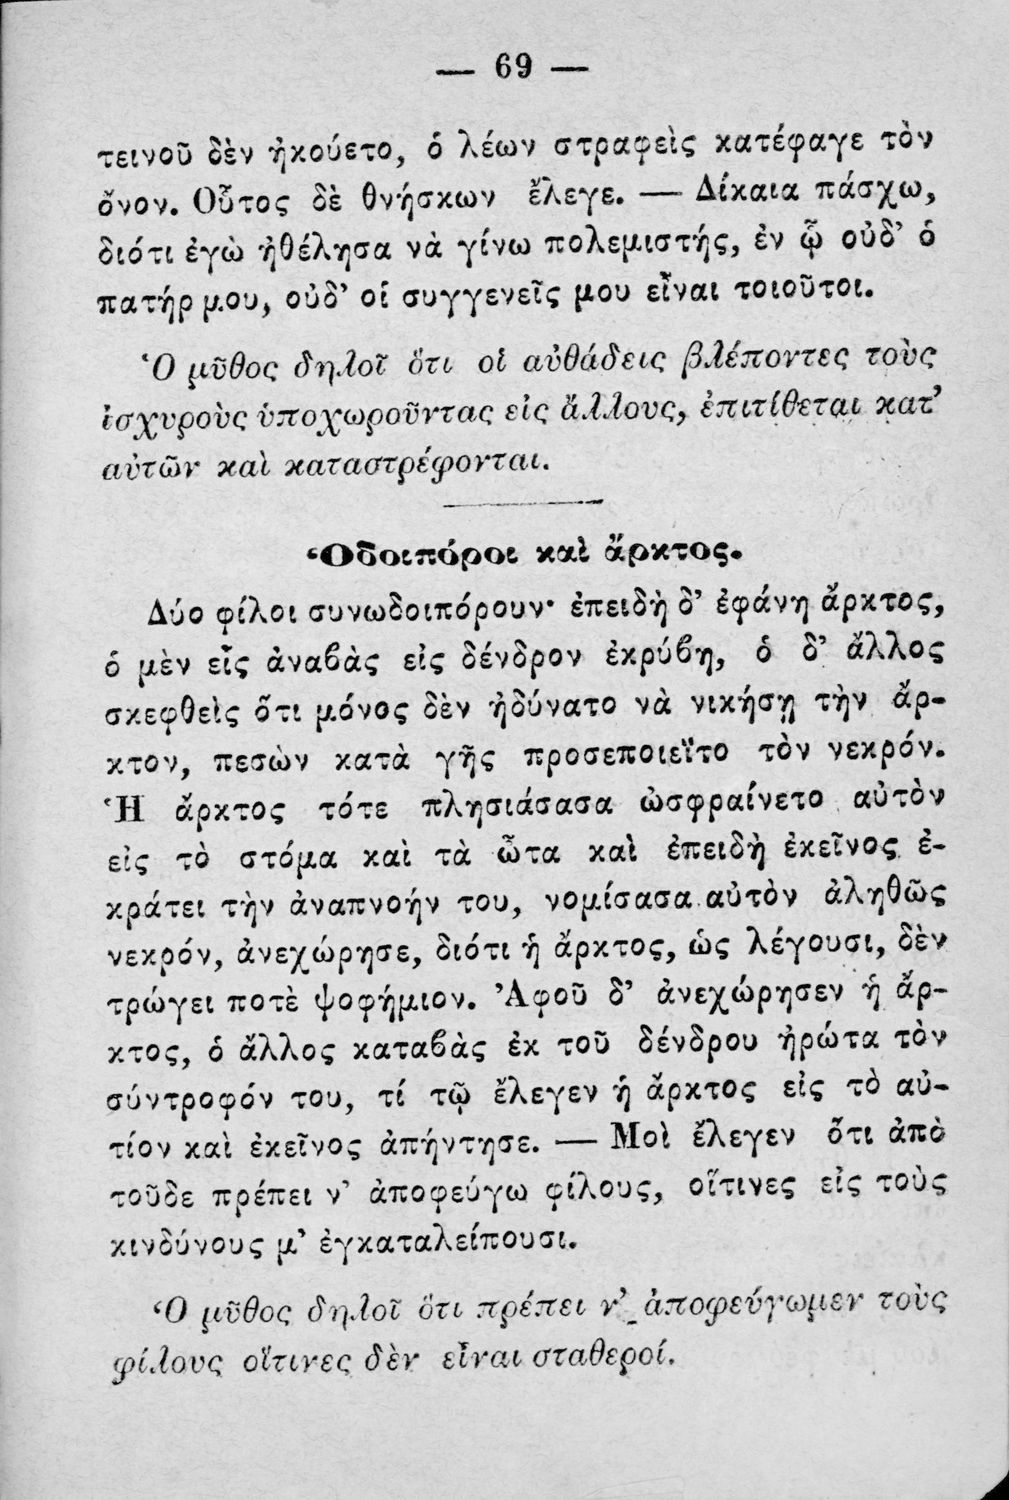 — 69 —
τεινοῦ δὲν ἠκούετο, ὁ λέων στραφεὶς κατέφαγε τὸν
ὄνον. Οὗτος δὲ θνήσκων ἔλεγε. — Δίκαια πάσχω,
διότι ἐγὼ ἠθέλησα νὰ γίνω πολεμιστής, ἐν ᾧ οὐδ’ ὁ
πατήρ μου, οὐδ’ οἱ συγγενεῖς μου εἶναι τοιοῦτοι.
Ὁ μῦθος δηλοῖ ὅτι οἱ αὐθάδεις βλέποντες τοὺς
ἰσχυροὺς ὑποχωροῦντας εἰς ἄλλους, ἐπιτίθεται κατ’
αὐτῶν καὶ καταστρέφονται.
Ὁδοιπόροι καὶ ἄρκτος.
Δύο φίλοι συνωδοιπόρουν· ἐπειδὴ δ’ ἐφάνη ἄρκτος,
ὁ μὲν εἷς ἀναβὰς εἰς δένδρον ἐκρύβη, ὁ δ’ ἄλλος
σκεφθεὶς ὅτι μόνος δὲν ἠδύνατο νὰ νικήσῃ τὴν ἄρ-
κτον, πεσὼν κατὰ γῆς προσεποιεῖτο τὸν νεκρόν.
Ἡ ἄρκτος τότε πλησιάσασα ὠσφραίνετο αὐτὸν
εἰς τὸ στόμα καὶ τὰ ὦτα καὶ ἐπειδὴ ἐκεῖνος ἐ-
κράτει τὴν ἀναπνοήν του, νομίσασα αὐτὸν ἀληθῶς
νεκρόν, ἀνεχώρησε, διότι ἡ ἄρκτος, ὡς λέγουσι, δὲν
τρώγει ποτὲ ψοφήμιον. Ἀφοῦ δ’ ἀνεχώρησεν ἡ ἄρ-
κτος, ὁ ἄλλος καταβὰς ἐκ τοῦ δένδρου ἠρώτα τὸν
σύντροφόν του, τί τῷ ἔλεγεν ἡ ἄρκτος εἰς τὸ αὐ-
τίον καὶ ἐκεῖνος ἀπήντησε. — Μοὶ ἔλεγεν ὅτι ἀπὸ
τοῦδε πρέπει ν’ ἀποφεύγω φίλους, οἵτινες εἰς τοὺς
κινδύνους μ’ ἐγκαταλείπουσι.
Ὁ μῦθος δηλοῖ ὅτι πρέπει ν’ ἀποφεύγωμεν τοὺς
φίλους οἵτινες δὲν εἶναι σταθεροί.